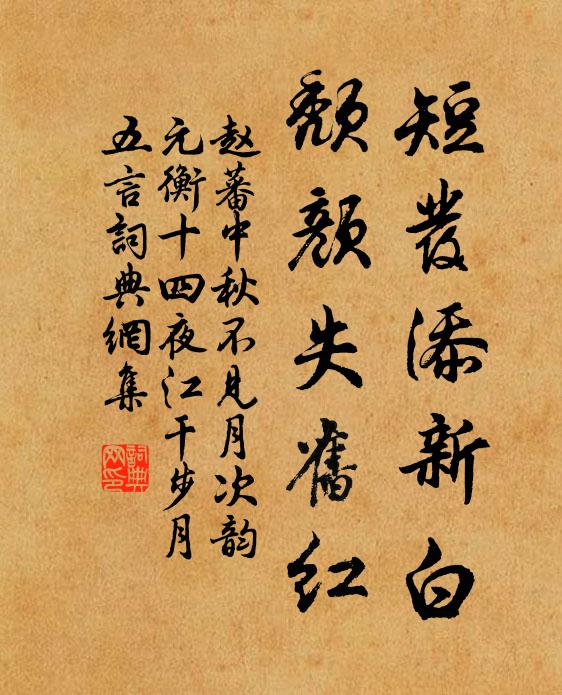 短發添新白
頹顏失舊紅
赵蕃中秋不见月次韵
元衡十四夜江干步月
五言詞典網集
詞典
网印